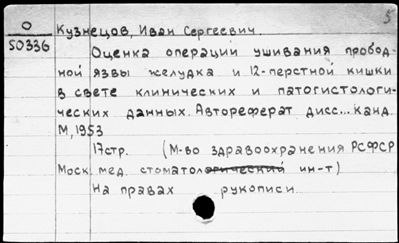 5
О
50336
Кузнецов, Иван Сергеевич.
Оценка операции ушивания пробод-
ной язвы желудка и 12-перстной кишки
в свете клинических и патогистологи-
ческих данных. Автореферат дисс... канд.
М, 1953
17стр. (М-во здравоохранения РСФСР
Моск. мед. стоматологический ин-т)
На правах рукописи.